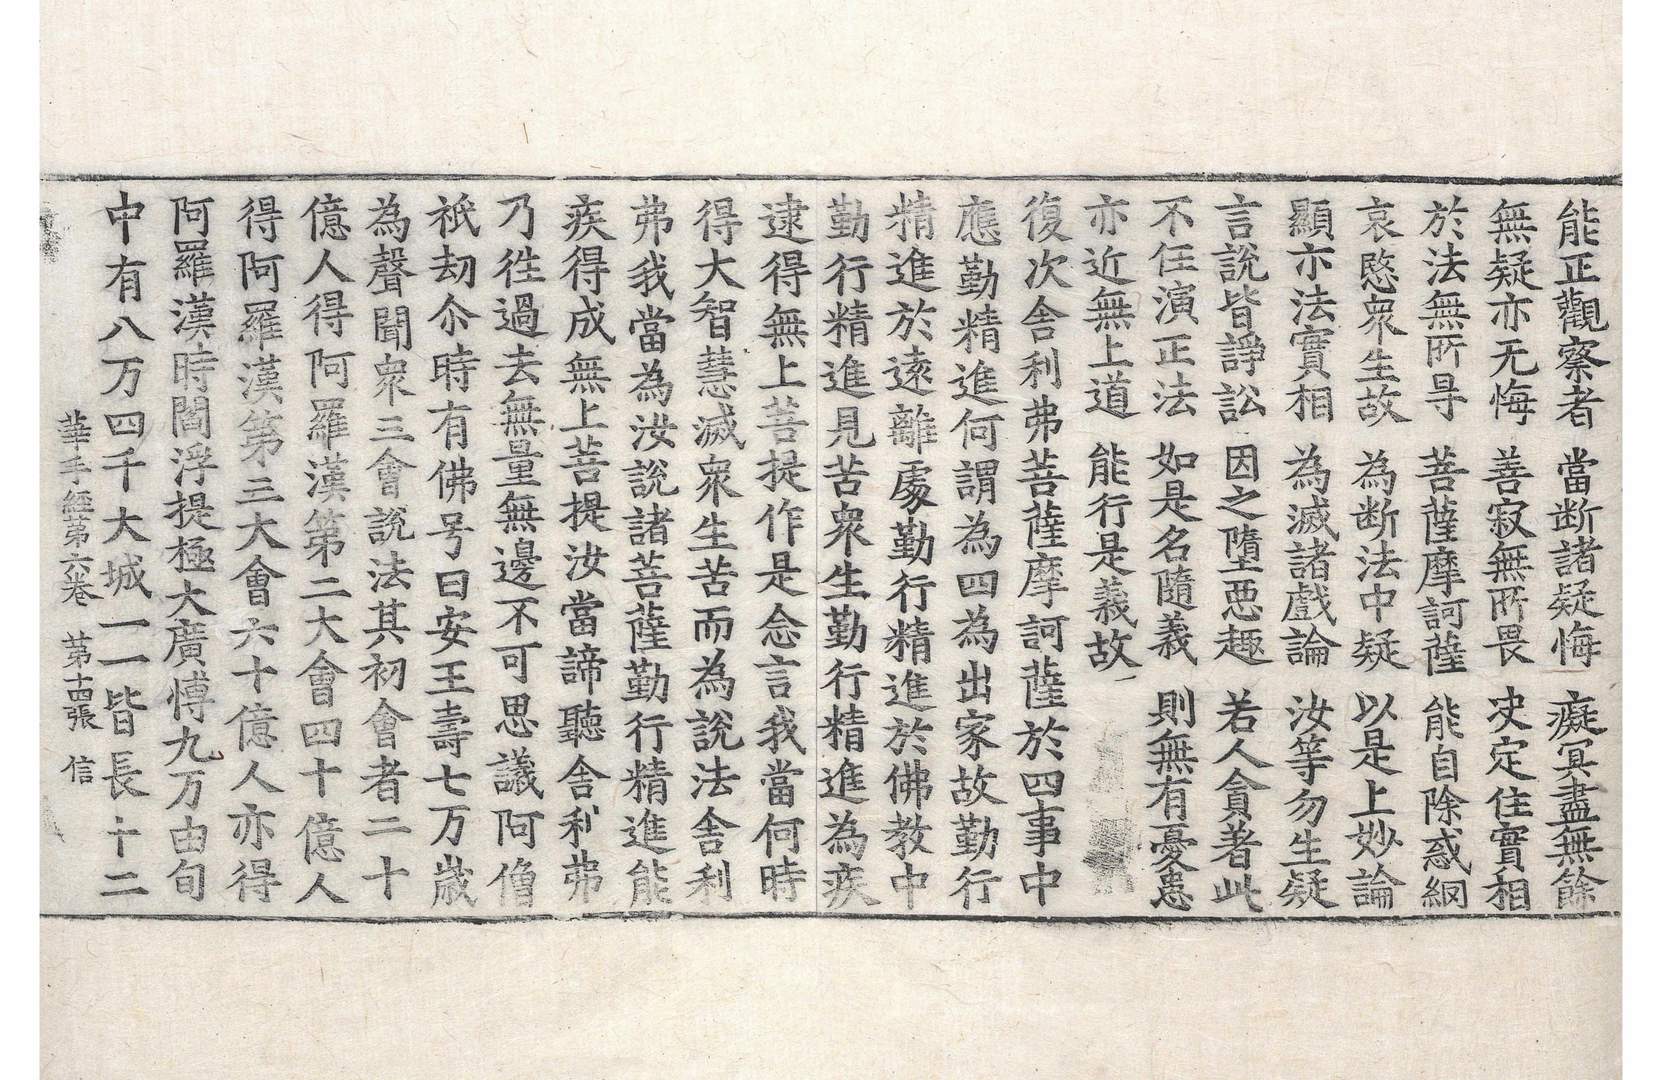 能正觀察者　當断諸疑悔　癡冥盡無餘
無疑亦无悔　善寂無所畏　决定住實相
於法無所㝵　菩薩摩訶薩　能自除惑網
哀愍衆生故　為断法中疑　以是上妙論
顯示法實相　為滅諸戲論　汝等勿生疑
言說皆諍訟　因之墮惡趣　若人貪著此
不任演正法　如是名隨義　則無有憂患
亦近無上道　能行是義故
復次舍利弗菩薩摩訶薩於四事中
應勤精進何謂為四為出家故勤行
精進於遠離處勤行精進於佛教中
勤行精進見苦衆生勤行精進為疾
逮得無上菩提作是念言我當何時
得大智慧滅衆生苦而為說法舍利
弗我當為汝說諸菩薩勤行精進能
疾得成無上菩提汝當諦聽舍利弗
乃徃過去無量無邊不可思議阿僧
祇劫尒時有佛号曰安王壽七万歲
為聲聞衆三會說法其初會者二十
億人得阿羅漢第二大會四十億人
得阿羅漢第三大會六十億人亦得
阿羅漢時閻浮提極大廣愽九万由旬
中有八万四千大城一一皆長十二
華手經第六卷　第十四張　信